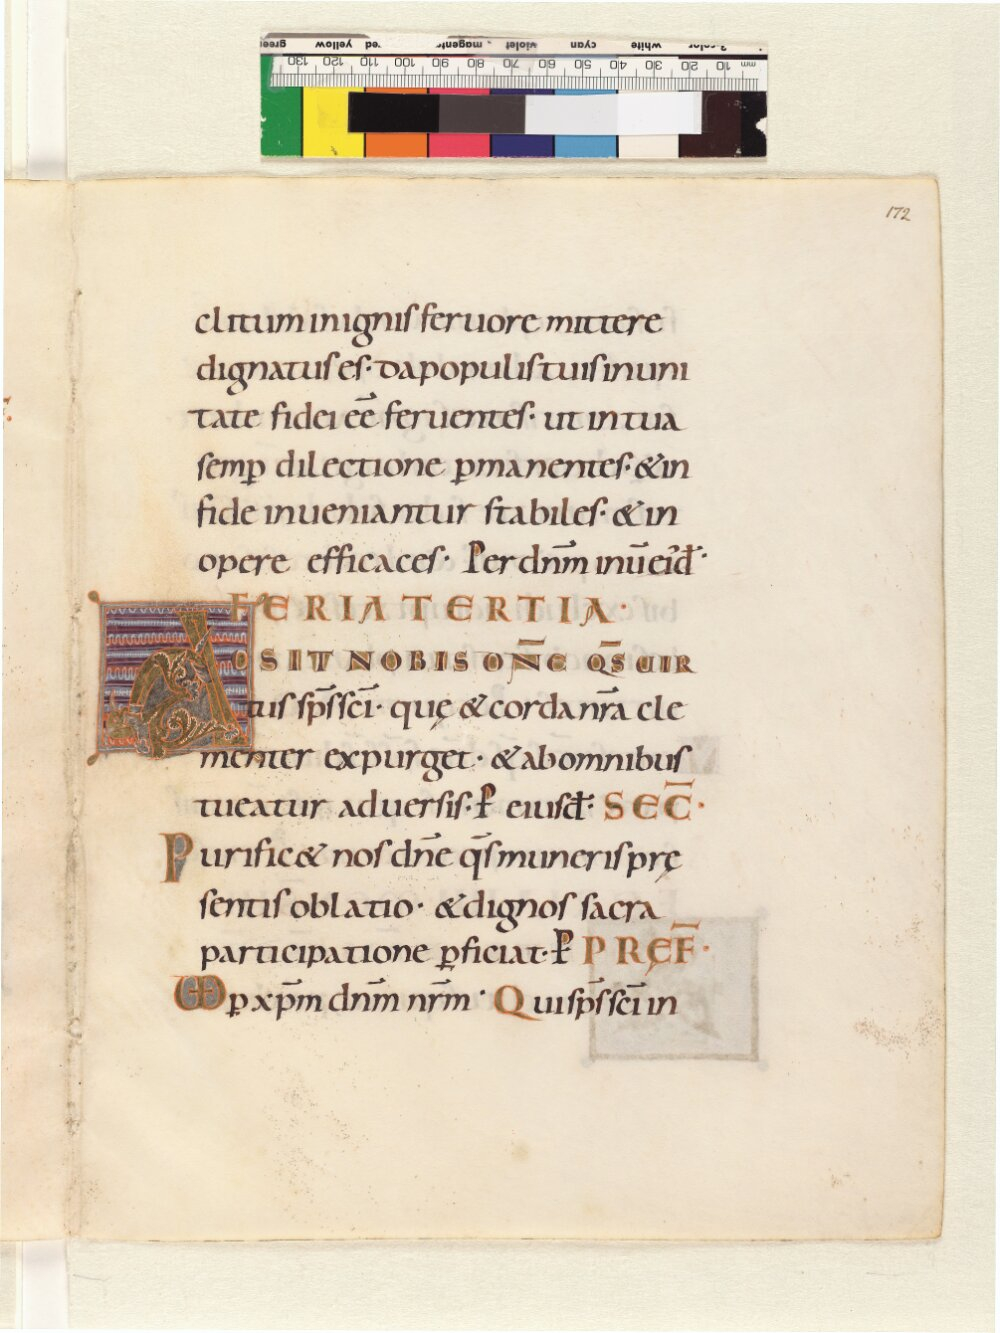 green yellow red magenta violet cyan white 3-color
130 120 110 100 90 80 70 60 50 40 30 20 10 mm
172
clitum in ignis feruore mittere
dignatus es· da populis tuis in uni
tate fidei eē feruentes· ut in tua
semꝑ dilectione ꝑmanentes· & in
fide inueniantur stabiles· & in
opere efficaces· Per dnm̄ inūeiđ·
FERIA TERTIA·
ADSIT NOBIS DÑE QS̄ UIR
tus sp̄s sc̄i· quę & corda nr̄a cle
menter expurget· & ab omnibus
tueatur aduersis· P̄ eiusđ· SEC̄·
Purific& nos dn̄e qs̄ muneris prę
sentis oblatio· & dignos sacra
participatione ꝑficiat· P̄ PRĘF̄·
VD ꝑ xp̄m dnm̄ nrm̄· Qui sp̄s sc̄i in